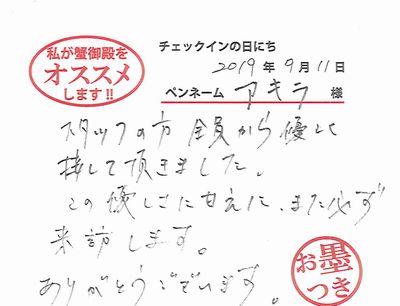 私が蟹御殿を
オススメ
します!!
チェックインの日にち
2019年9月11日
ペンネーム アキラ 様
スタッフの方 全員から優しく
接して頂きました。
この優しさに甘えに、また必ず
来訪します。
ありがとうございます。
お墨
つき